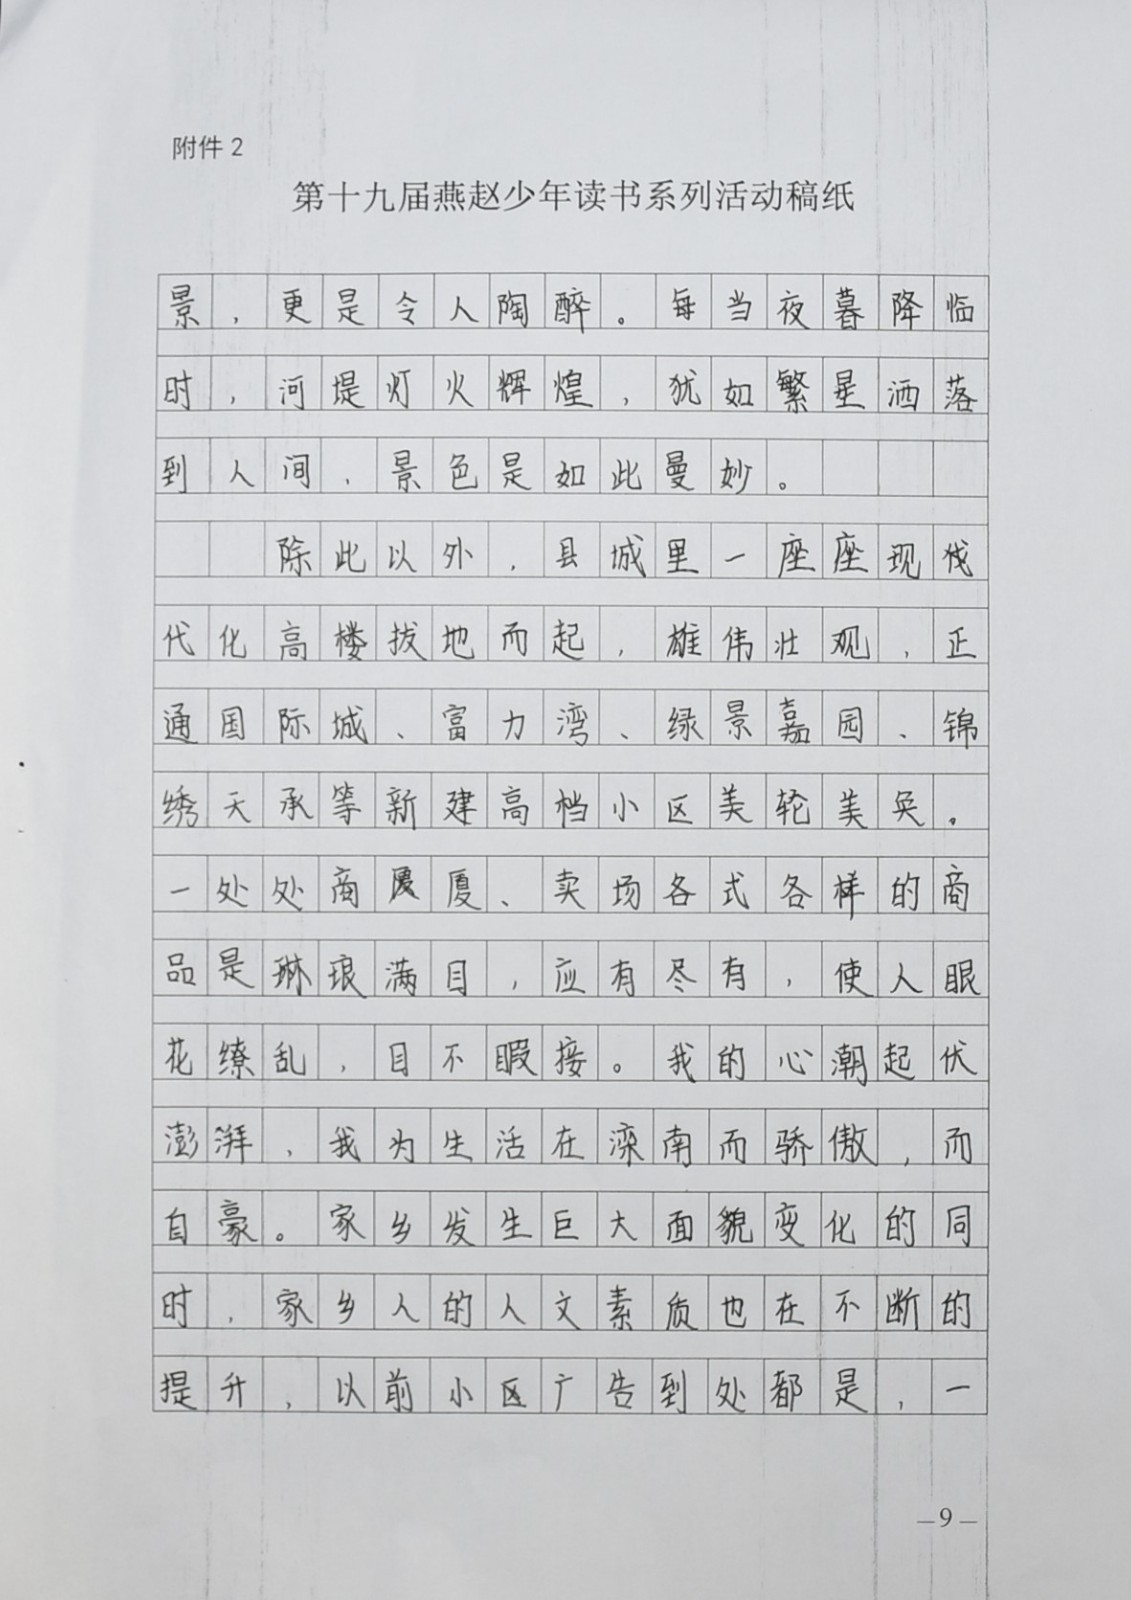 附件2
第十九届燕赵少年读书系列活动稿纸
景，更是令人陶醉。每当夜暮降临
时，河堤灯火辉煌，犹如繁星洒落
到人间，景色是如此曼妙。
除此以外，县城里一座座现伐
代化高楼拔地而起，雄伟壮观，正
通国际城、富力湾、绿景嘉园、锦
绣天承等新建高档小区美轮美奂。
一处处商厦厦、卖场各式各样的商
品是琳琅满目，应有尽有，使人眼
花缭乱，目不暇接。我的心潮起伏
澎湃，我为生活在滦南而骄傲，而
自豪。家乡发生巨大面貌变化的同
时，家乡人的人文素质也在不断的
提升，以前小区广告到处都是，一
—9—